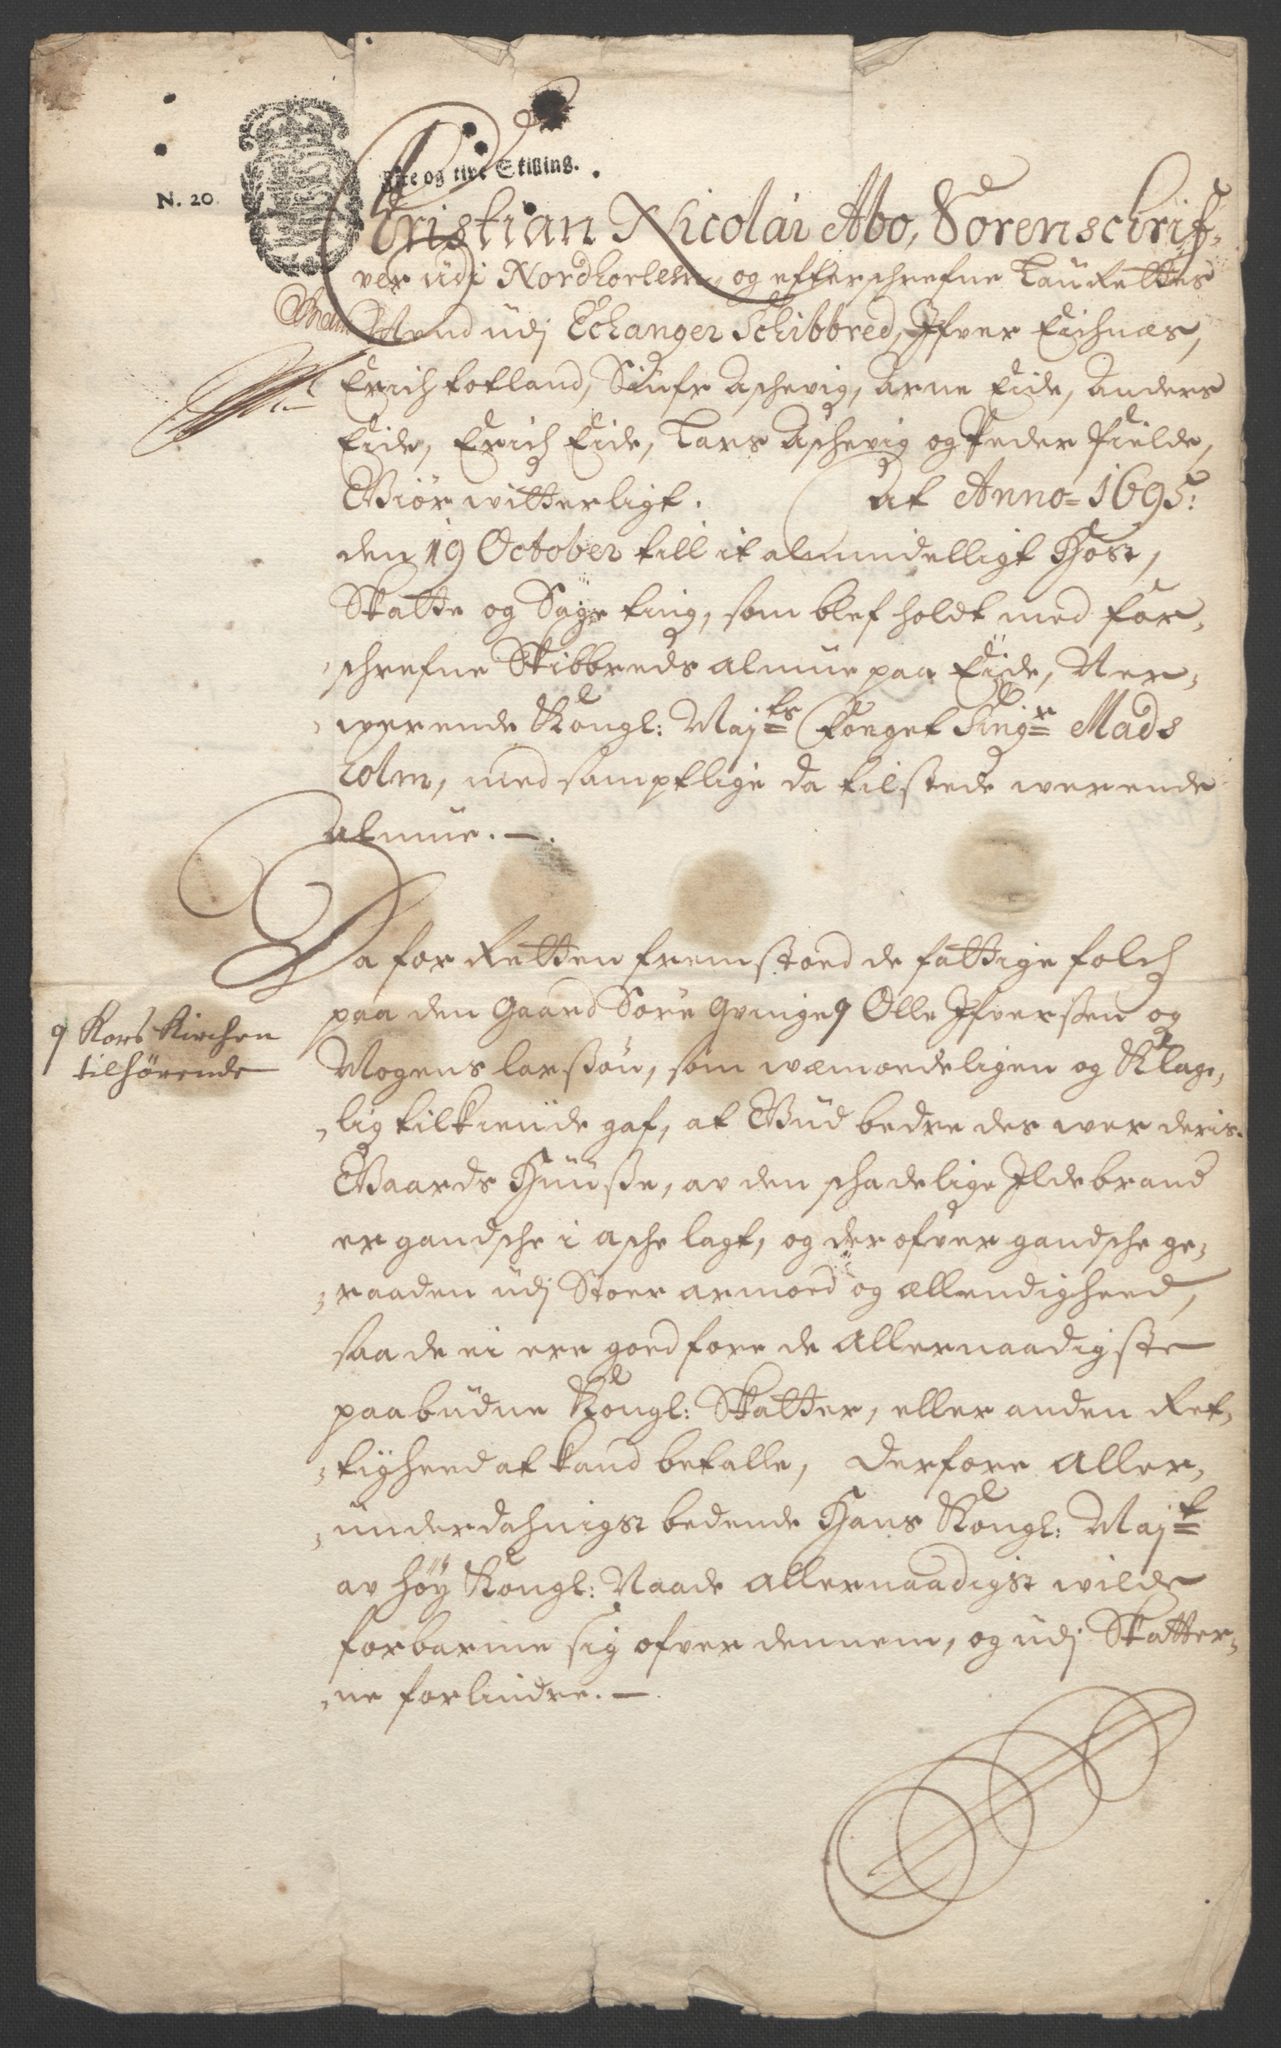 N. 20
Fire og tive Skilling.
Christian Nicolai Abo, Sorenschrif-
ver udi Nordhorlehn, og efterschrefne Laurettes
Mend udj Echanger Schibbred, Ifver Eichnæs,
Erich totland, Siufr Aschevig, Arne Eide, Anders
Eide, Erich Eide, Lars Aschevig og Peder Fielde,
Giør witterligt. At Anno= 1695:
den 19 October till it almindelligt Høst,
Skatte og Sage ting, som blef holdt med for-
-schrefne Skibbreds almue paa Eide, Ner-
werende Kongl: Maj:ts Fouget Sing:r Mads
Colm, med samptlige da tilstede werende
almue. —.
Da for Retten fremstoed de fattige folch
paa den Gaard Søre Qvinge 9 Olle Ifverssen og
Mogens larssøn, som wemoedeligen og Klage-
-lig tilkiende gaf, at Gud bedre des wer deris
Gaards Huusse, av den schadelige Ildebrand
er gandsche i asche lagt, og der ofver gandsche ge-
-raaden udj Stoer armoed og ellendigheed,
saa de ei ere goed fore de Allernaadigste
paabudne Kongl: Skatter, eller anden Ret-
-tigheed at kand betalle, Derfore Aller-
-underdahnigst bedende Hans Kongl: Maj:t
av høy Kongl: Naade Allernaadigst wilde
forbarme sig ofver dennem, og udj Skatter-
-ne forlindre. —.
9 Kors Kirchen
tilhørende